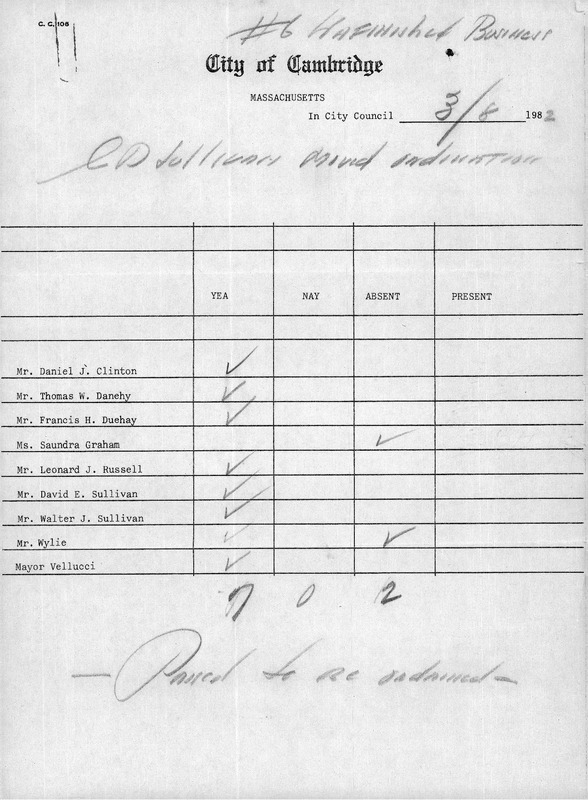 C. C. 106
#6 Unfinished Business
City of Cambridge
MASSACHUSETTS
In City Council 3/8 1982
C D Sullivan moved ordination
YEA NAY ABSENT PRESENT
Mr. Daniel J. Clinton ✓
Mr. Thomas W. Danehy ✓
Mr. Francis H. Duehay ✓
Ms. Saundra Graham ✓
Mr. Leonard J. Russell ✓
Mr. David E. Sullivan ✓
Mr. Walter J. Sullivan ✓
Mr. Wylie ✓ ✓
Mayor Vellucci ✓
7 0 2
— Passed to be ordained —